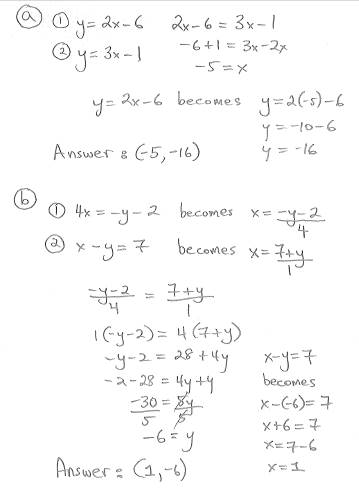 ⓐ ① y = 2x - 6    2x - 6 = 3x - 1
② y = 3x - 1    -6 + 1 = 3x - 2x
-5 = x
y = 2x - 6 becomes y = 2(-5) - 6
y = -10 - 6
Answer : (-5, -16)    y = -16
ⓑ ① 4x = -y - 2 becomes x = (-y - 2)/4
② x - y = 7 becomes x = (7 + y)/1
(-y - 2)/4 = (7 + y)/1
1(-y - 2) = 4(7 + y)
-y - 2 = 28 + 4y    x - y = 7
-2 - 28 = 4y + y    becomes
-30/5 = 5y/5    x - (-6) = 7
-6 = y    x + 6 = 7
x = 7 - 6
Answer : (1, -6)    x = 1